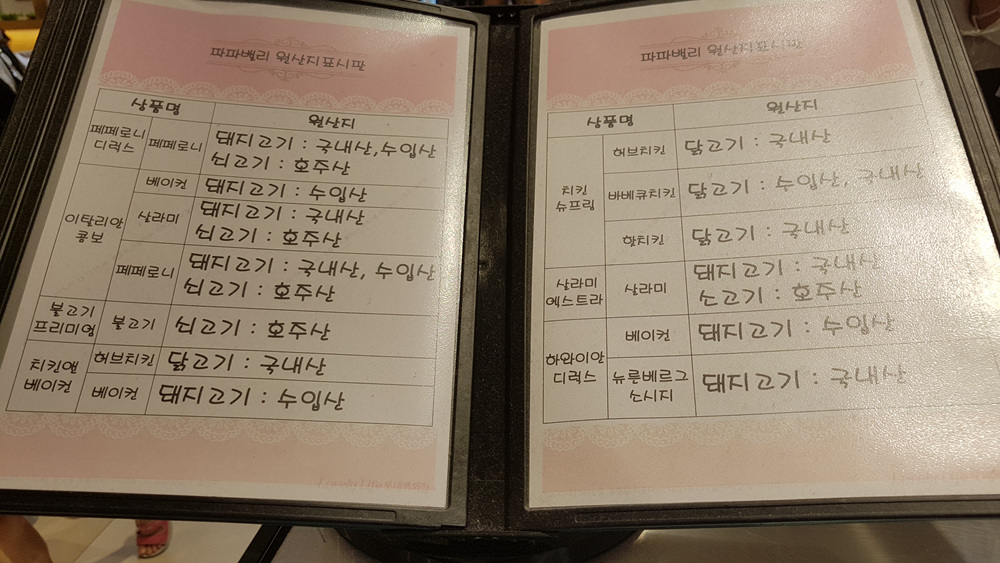 파파밸리 원산지표시판
상품명 원산지
페페로니
디럭스
페페로니
돼지고기 : 국내산,수입산
쇠고기 : 호주산
이탈리안
콤보
베이컨
돼지고기 : 수입산
살라미
돼지고기 : 국내산
쇠고기 : 호주산
페페로니
돼지고기 : 국내산, 수입산
쇠고기 : 호주산
불고기
프리미엄
불고기
쇠고기 : 호주산
치킨앤
베이컨
허브치킨
닭고기 : 국내산
베이컨
돼지고기 : 수입산
파파밸리 원산지표시판
상품명 원산지
치킨
슈프림
허브치킨
닭고기 : 국내산
바베큐치킨
닭고기 : 수입산, 국내산
핫치킨
닭고기 : 국내산
살라미
엑스트라
살라미
돼지고기 : 국내산
소고기 : 호주산
하와이안
디럭스
베이컨
돼지고기 : 수입산
뉴른베르그
소시지
돼지고기 : 국내산